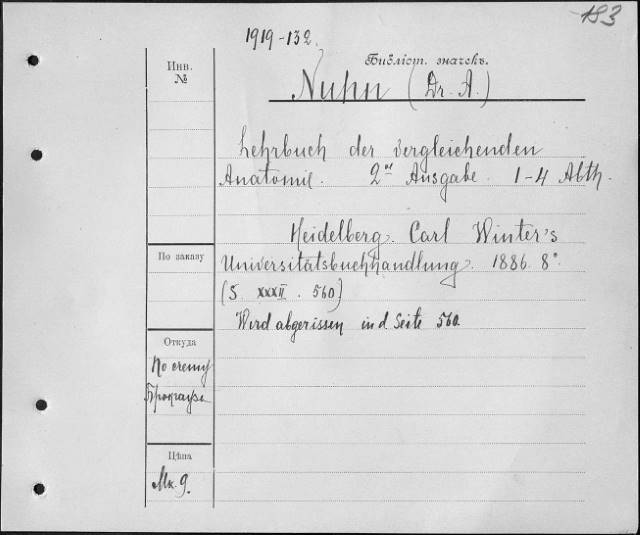 183
1919-132.
Инв. №
Библіот. значекъ.
Nuhn (Dr. A.)
Lehrbuch der vergleichenden
Anatomie. 2te Ausgabe. 1-4 Abth.
Heidelberg. Carl Winter's
По заказу
Universitätsbuchhandlung. 1886. 8°.
(S. XXXII. 560)
Wird abgerissen in d. Seite 560.
Откуда
По счету
Брокгаузъ
Цѣна
Мк. 9.